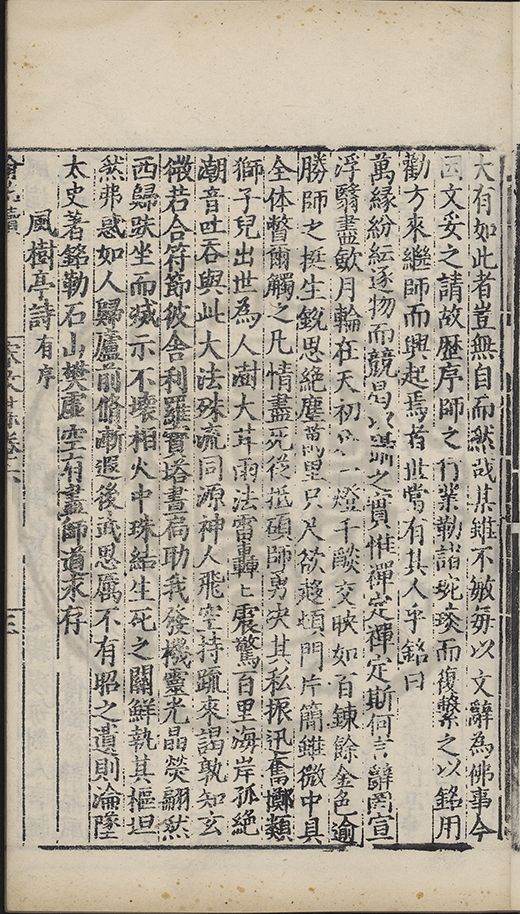 大有如此者豈無自而然哉某雖不敏每以文辭為佛事今
因文妥之請故歷序師之行業勒諸琬琰而復繫之以銘用
勸方來繼師而興起焉者世當有其人乎銘曰
萬緣紛紜逐物而競曷以湛之實惟禪定禪定斯何言辭罔宣
浮翳盡歛月輪在天初以一燈千燄交映如百鍊餘金色逾
勝師之挺生銳思絕塵萬里只尺欲趍頓門片簡錐微中具
全体瞥爾觸之凡情盡死從抵碩師勇決其私振迅奮擲類
獅子兒出世為人澍大茸雨法雷轟七震驚百里海岸孤絕
潮音吐吞與此大法殊流同源神人飛空持䟽來謁孰知玄
微若合符節彼舍利羅寶塔書局助我發機靈光晶熒翩然
西歸趺坐而滅示不壞相火中珠結生死之關鮮執其樞坦
然弗惑如人歸廬前脩漸遐後武思厲不有昭之遺則淪墜
太史著銘勒石山樊虛空有盡師道永存
風樹亭詩有序